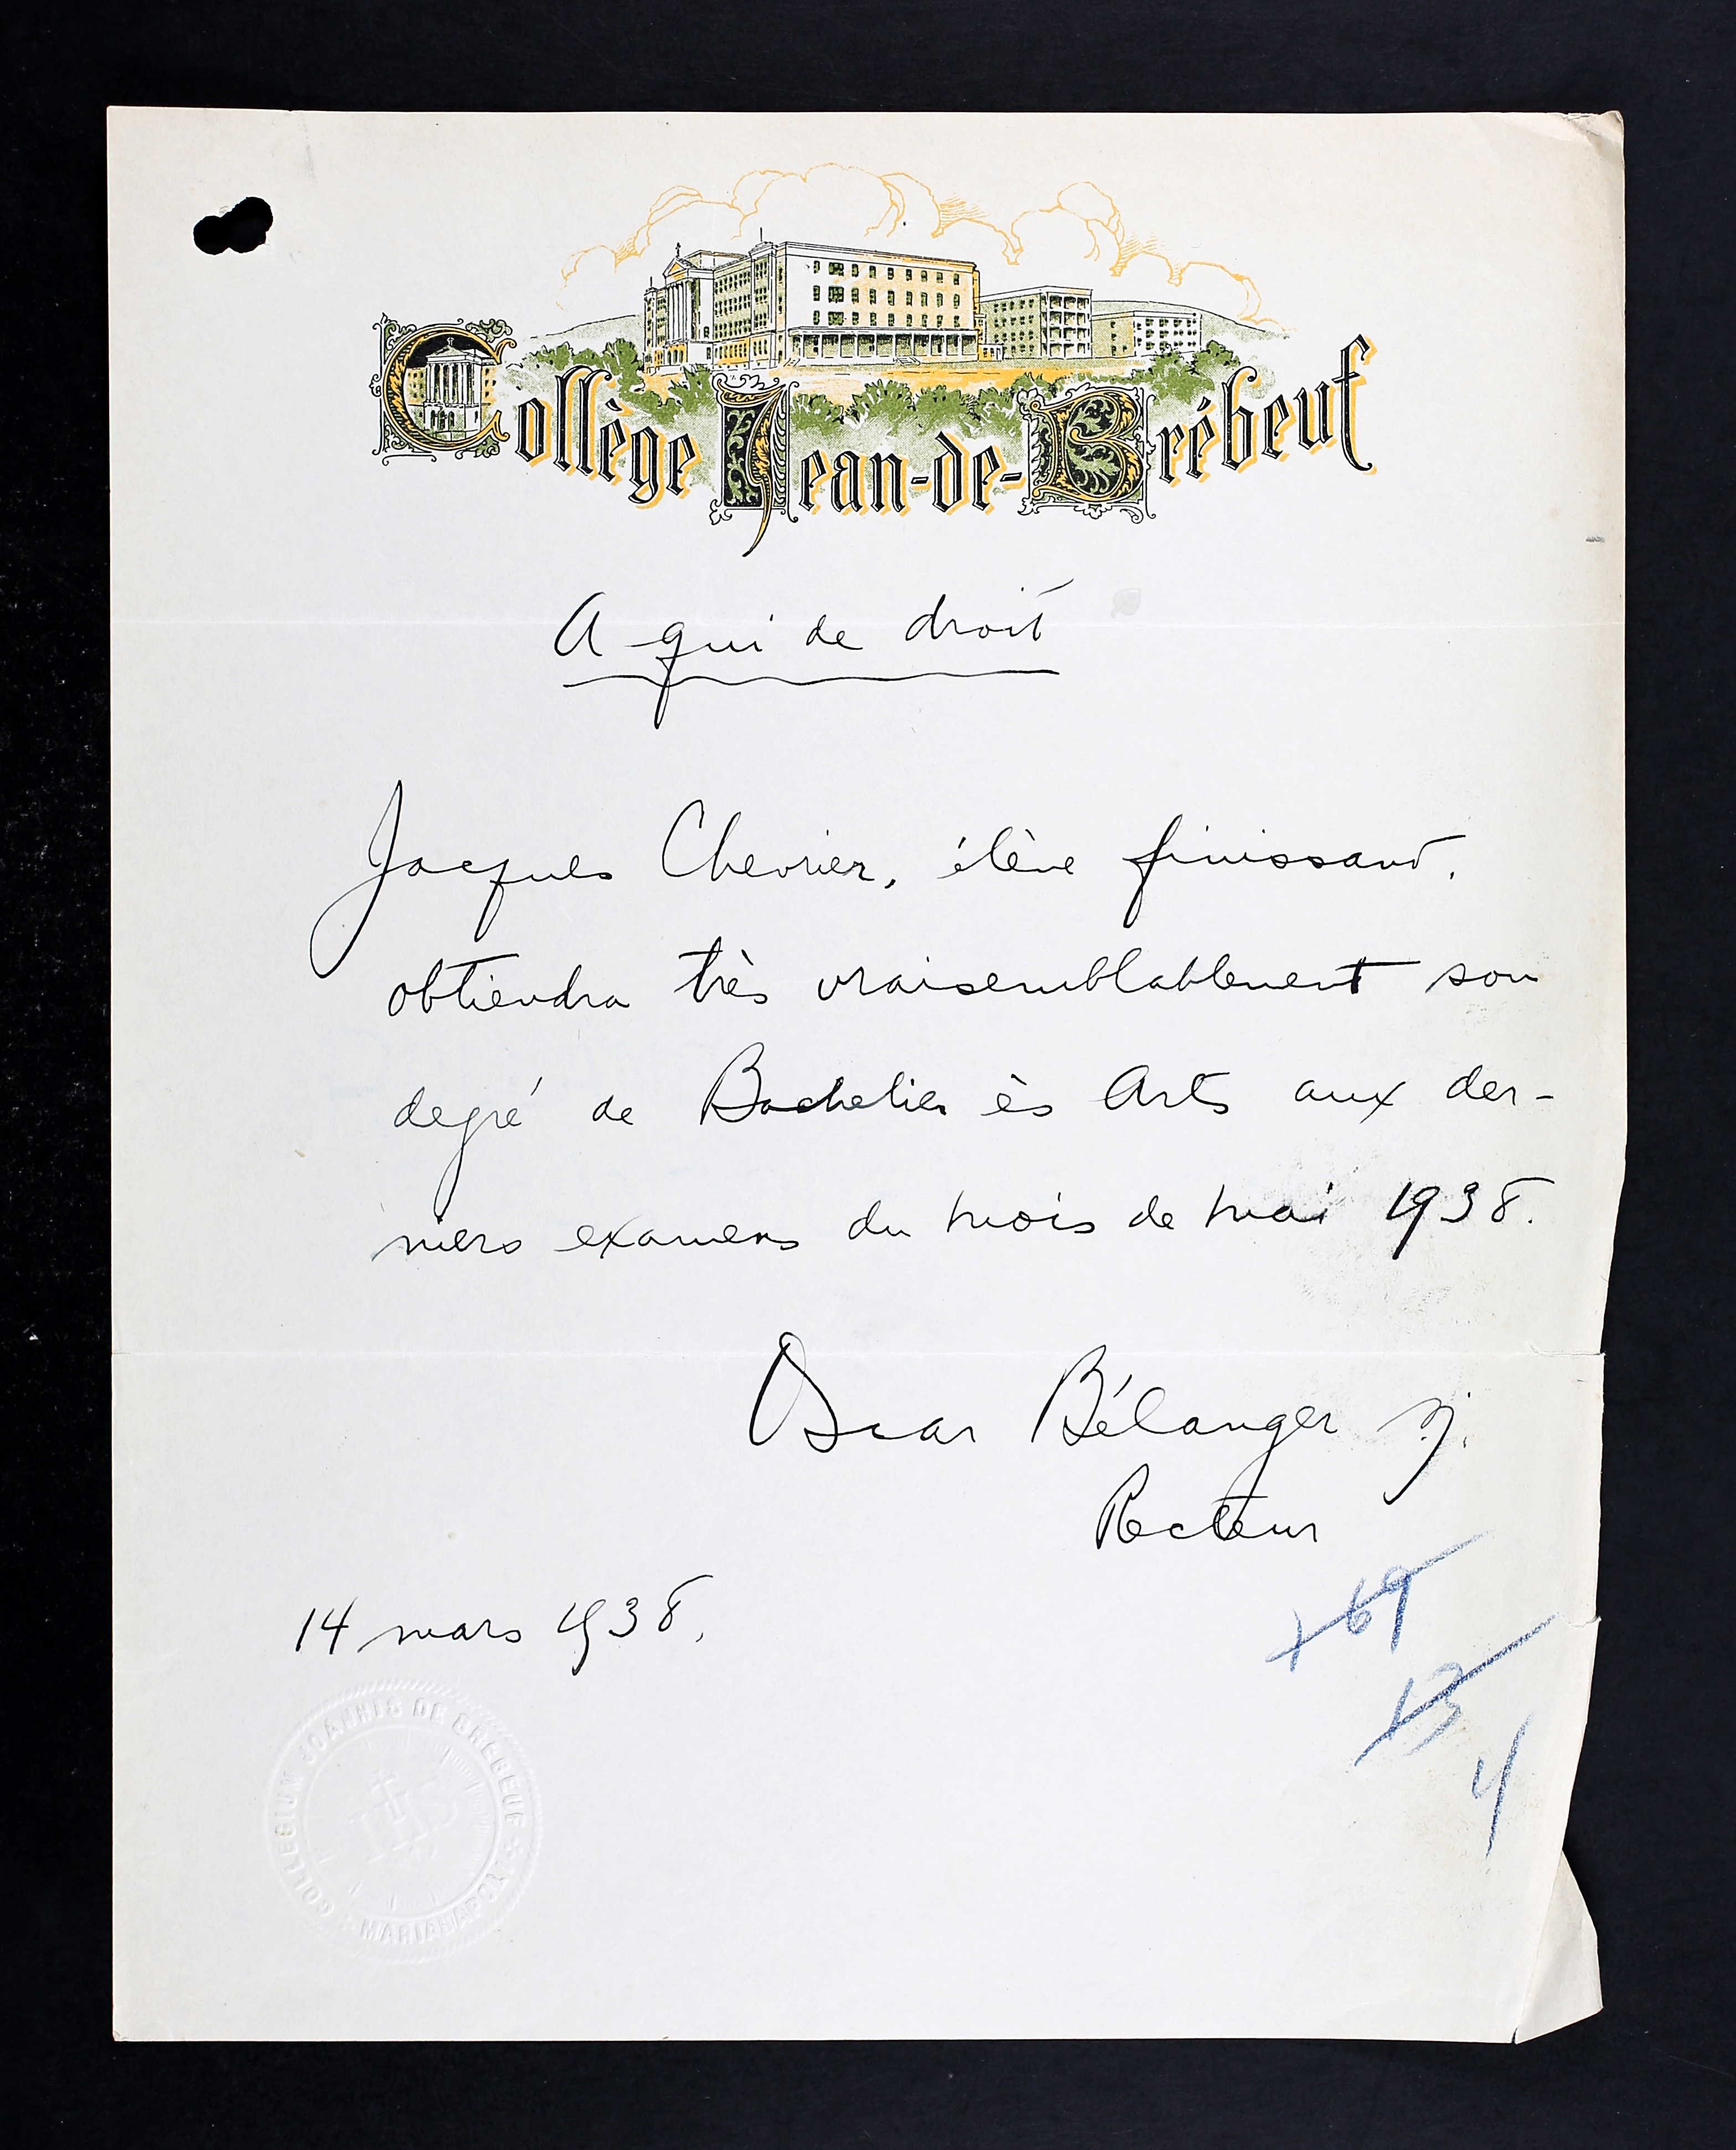 Collège Jean-de-Brébeuf
A qui de droit
Jacques Chevrier, élève finissant,
obtiendra très vraisemblablement son
degré de Bachelier ès Arts aux der-
niers examens du mois de mai 1938.
Oscar Bélanger sj.
Recteur
14 mars 1938.
+69
13
4
COLLEGIUM JOANNIS DE BREBEUF
MARIANAPOLI
IHS